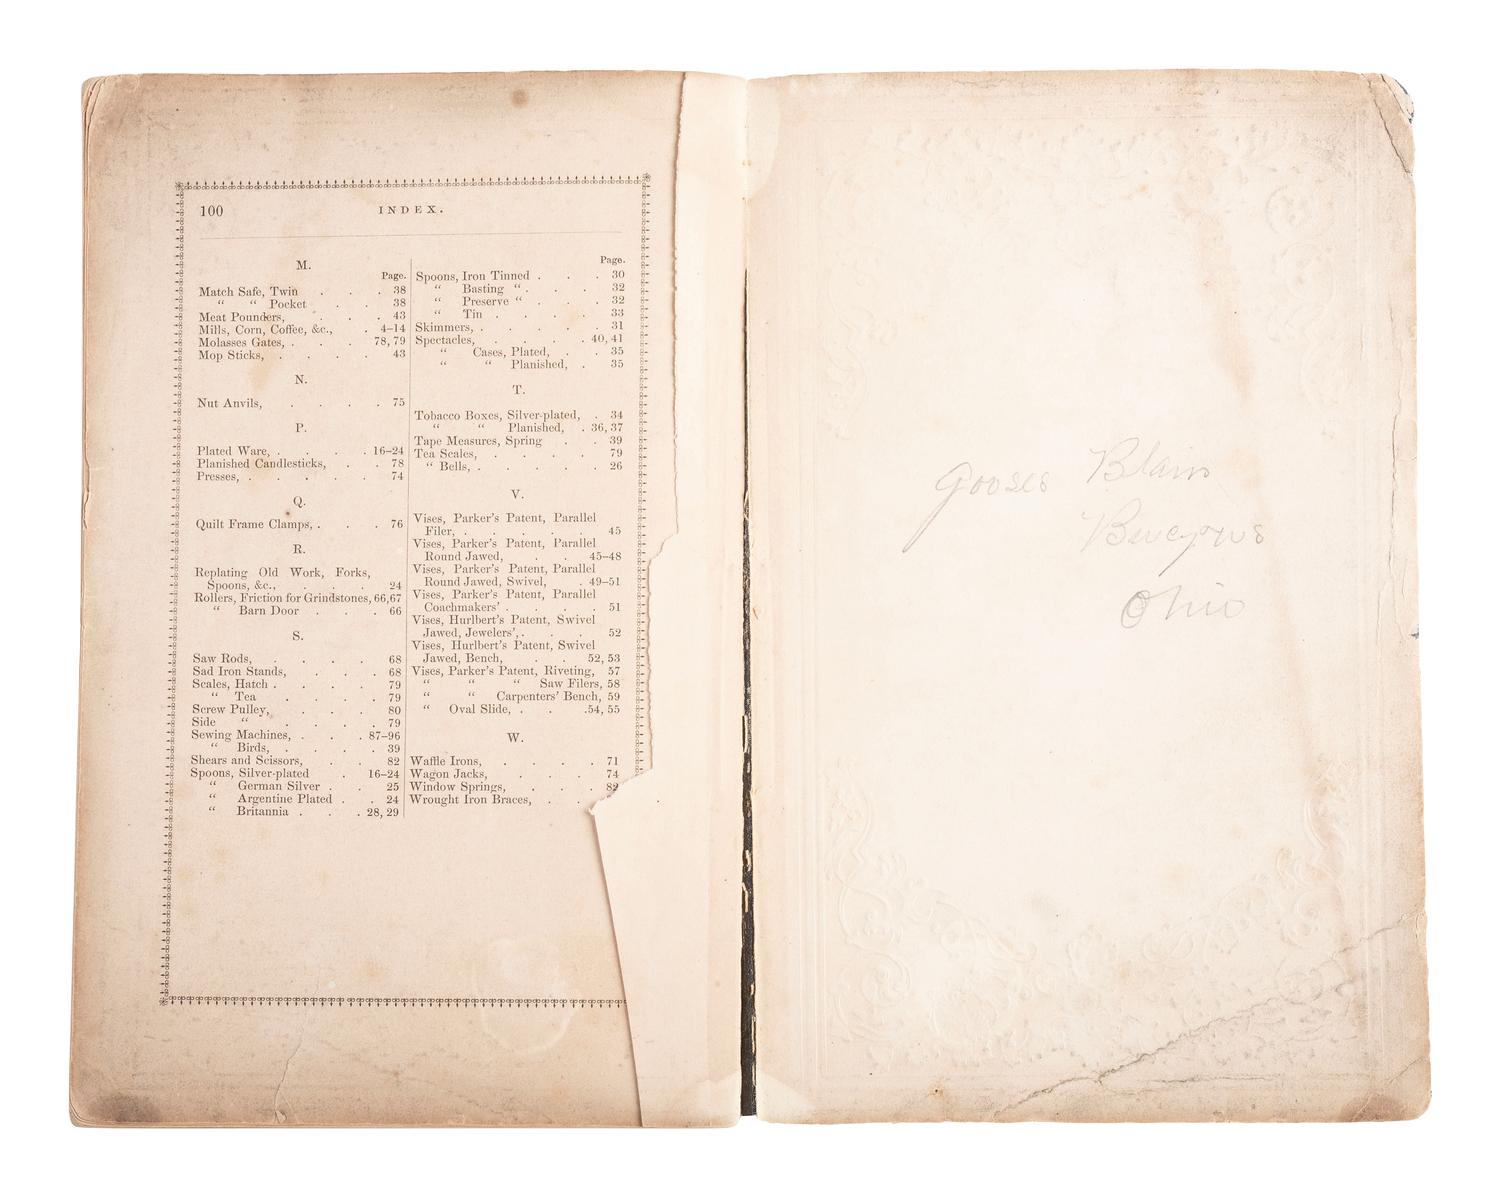 100
INDEX.
M.
Page.
Match Safe, Twin . . . 38
“ “ Pocket . . . 38
Meat Pounders, . . . 43
Mills, Corn, Coffee, &c., . 4–14
Molasses Gates, . . . 78, 79
Mop Sticks, . . . . 43
N.
Nut Anvils, . . . . 75
P.
Plated Ware, . . . . 16–24
Planished Candlesticks, . . 78
Presses, . . . . . 74
Q.
Quilt Frame Clamps, . . . 76
R.
Replating Old Work, Forks,
Spoons, &c., . . . . 24
Rollers, Friction for Grindstones, 66,67
“ Barn Door . . . 66
S.
Saw Rods, . . . . 68
Sad Iron Stands, . . . 68
Scales, Hatch . . . . 79
“ Tea . . . . 79
Screw Pulley, . . . 80
Side “ . . . . 79
Sewing Machines, . . . 87–96
“ Birds, . . . . 39
Shears and Scissors, . . 82
Spoons, Silver-plated . 16–24
“ German Silver . . 25
“ Argentine Plated . . 24
“ Britannia . . . 28, 29
Page.
Spoons, Iron Tinned . . . 30
“ Basting “ . . . 32
“ Preserve “ . . . 32
“ Tin . . . . 33
Skimmers, . . . . . 31
Spectacles, . . . . 40, 41
“ Cases, Plated, . . 35
“ “ Planished, . 35
T.
Tobacco Boxes, Silver-plated, . 34
“ “ Planished, . 36, 37
Tape Measures, Spring . . 39
Tea Scales, . . . . 79
“ Bells, . . . . . 26
V.
Vises, Parker’s Patent, Parallel
Filer, . . . . . 45
Vises, Parker’s Patent, Parallel
Round Jawed, . . 45–48
Vises, Parker’s Patent, Parallel
Round Jawed, Swivel, . 49–51
Vises, Parker’s Patent, Parallel
Coachmakers’ . . . . 51
Vises, Hurlbert’s Patent, Swivel
Jawed, Jewelers’, . . . 52
Vises, Hurlbert’s Patent, Swivel
Jawed, Bench, . . 52, 53
Vises, Parker’s Patent, Riveting, 57
“ “ “ Saw Filers, 58
“ “ Carpenters’ Bench, 59
“ Oval Slide, . . . 54, 55
W.
Waffle Irons, . . . . 71
Wagon Jacks, . . . . 74
Window Springs, . . . 82
Wrought Iron Braces, . . .
Blain
Ohio